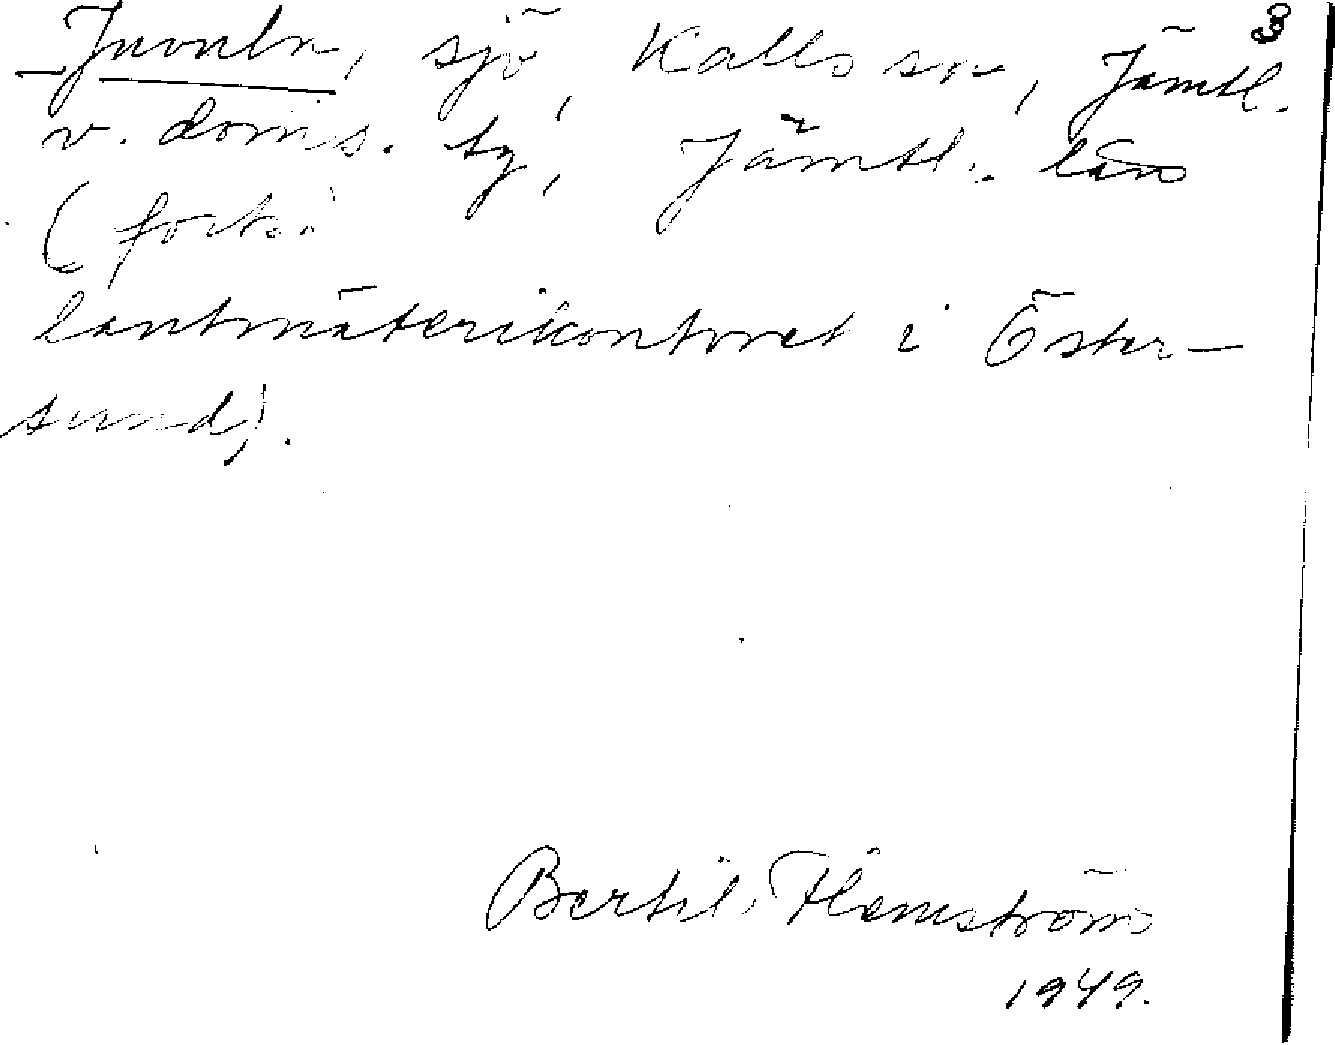 3
Juvuln, sjö, Kalls sn, Jämtl.
v. doms. tg, Jämtl:. län
(fört.
lantmäterikontoret i Öster-
sund).
Bertil Flemström
1949.